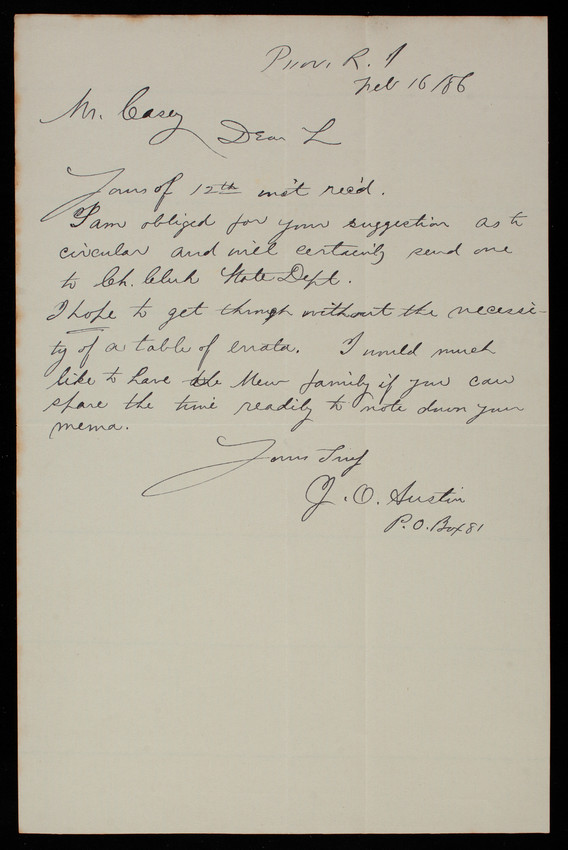 Prov. R. I
Feb 16/86
Mr. Casey
Dear
Yours of 12th inst rec'd.
I am obliged for your suggestion as to
circular and will certainly send one
to Ch. Clerk State Dept.
I hope to get through without the necessi-
ty of a table of errata. I would much
like to have the Mew family if you can
spare the time readily to note down your
mema.
Yours Truly
J. O. Austin
P.O. Box 81